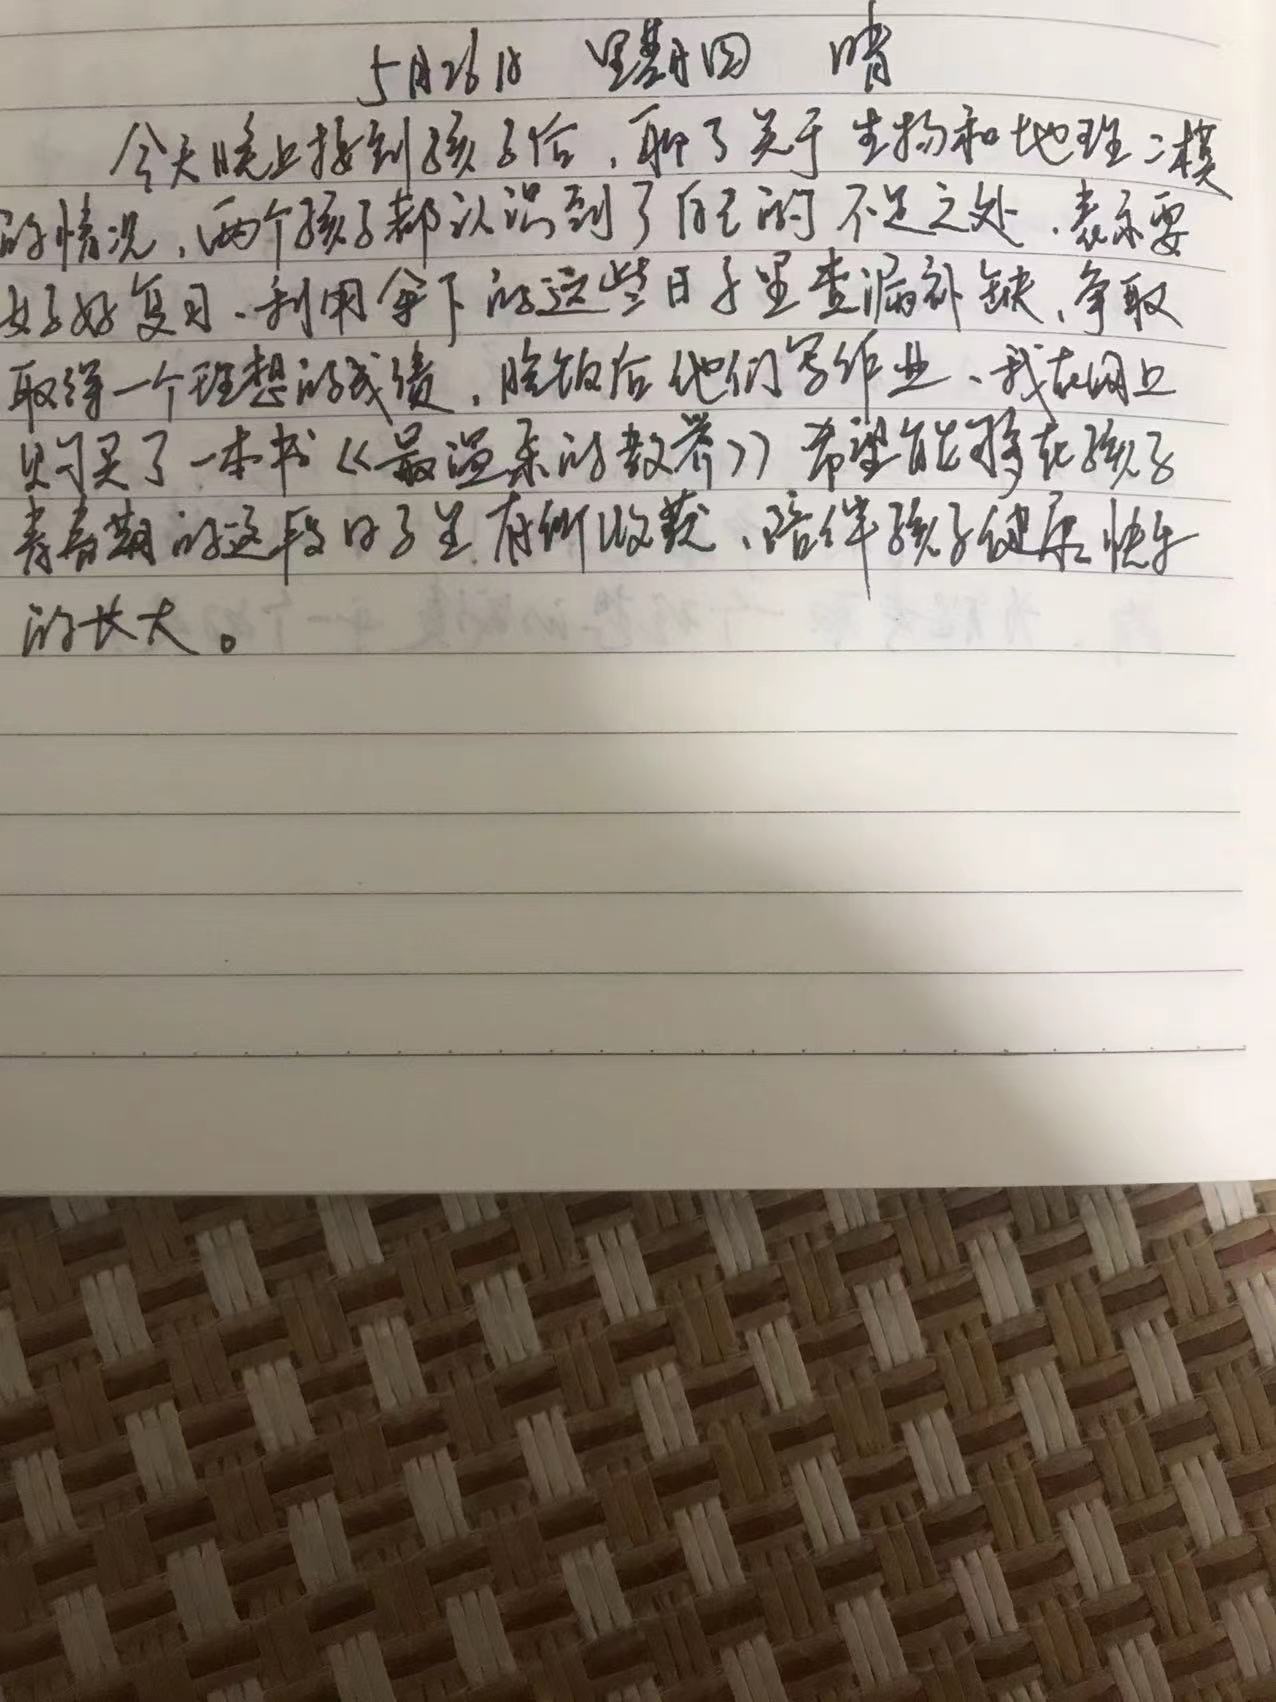 5月26日 星期四 晴
今天晚上接到孩子后,聊了关于生物和地理二模
的情况,两个孩子都认识到了自己的不足之处,表示要
好好复习、利用余下的这些日子里查漏补缺,争取
取得一个理想的成绩,晚饭后他们写作业、我在网上
购买了一本书《最温柔的教养》希望能够在孩子
青春期的这段日子里有所收获、陪伴孩子健康快乐
的长大。